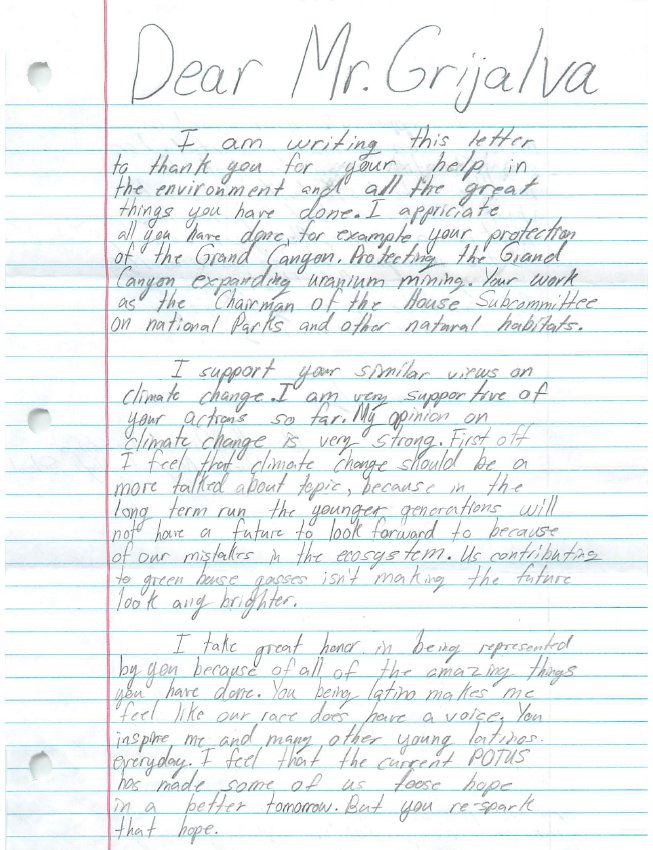 Dear Mr. Grijalva
I am writing this letter
to thank you for your help in
the environment and all the great
things you have done. I appriciate
all you have done, for example your protection
of the Grand Canyon. Protecting the Grand
Canyon expanding uranium mining. Your work
as the Chairman of the House Subcommittee
on national Parks and other natural habitats.
I support your similar views on
climate change. I am very supportive of
your actions so far. My opinion on
climate change is very strong. First off
I feel that climate change should be a
more talked about topic, because in the
long term run the younger generations will
not have a future to look forward to because
of our mistakes in the ecosystem. Us contributing
to green house gasses isn't making the future
look any brighter.
I take great honor in being represented
by you because of all of the amazing things
you have done. You being latino makes me
feel like our race does have a voice. You
inspire me and many other young latinos.
everyday. I feel that the current POTUS
has made some of us loose hope
in a better tomorrow. But you re-spark
that hope.